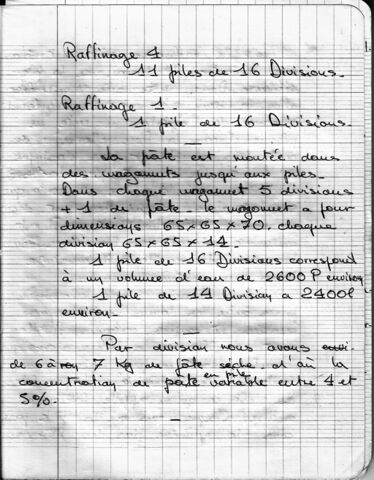 Raffinage 4
11 piles de 16 Divisions.
Raffinage 1.
1 pile de 16 Divisions.
La pâte est montée dans
des wagonnets jusqu'aux piles.
Dans chaque wagonnet 5 divisions
+ 1 de pâte. le wagonnet a pour
dimensions 65x65x70. chaque
division 65x65x14.
1 pile de 16 Divisions correspond
à un volume d'eau de 2600 l environ
1 pile de 14 Division a 2400l
environ.
Par division nous avons
de 6 à 7 Kg de pâte sèche. d'où la
concentration de pâte en pile variable entre 4 et
5%.